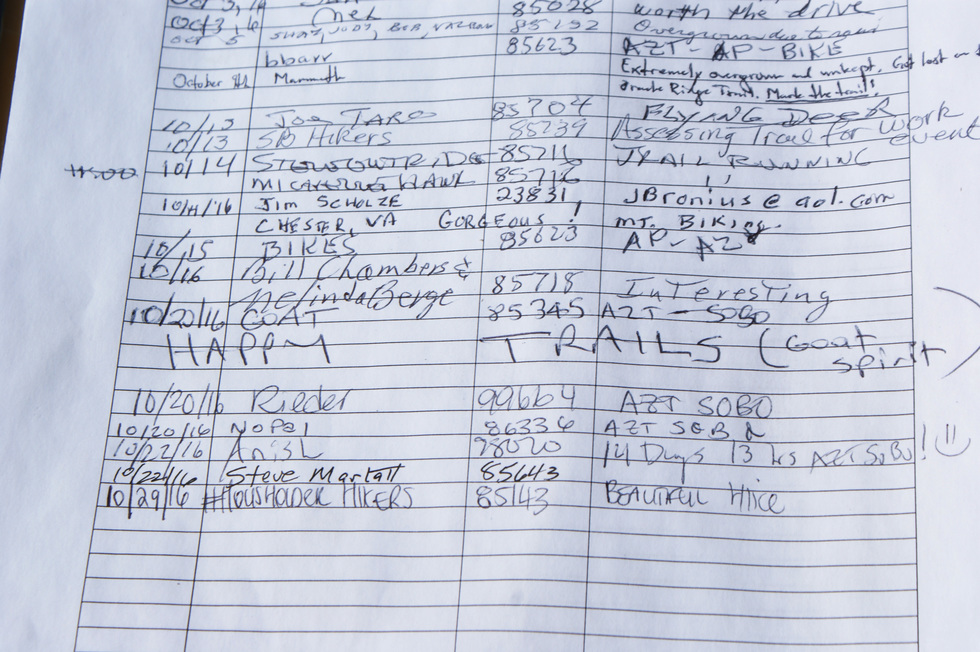 Oct 3, 16 85028 worth the drive
Oct 5 85192 Overgrown due to
bbarr 85623 AZT-AP-BIKE
October 8th Mammoth Extremely overgrown and unkept. Got lost on
Oracle Ridge Trail. Mark the trail!
10/13 Joe TARO 85704 FLYING DEER
10/13 SB Hikers 85239 Assessing Trail for work event
10/14 85711 TRAIL RUNNING
HAWK 85716 ''
10/14/'16 Jim SCHOLZE 23831, JBronius@aol.com
CHESTER, VA GORGEOUS! MT. BIKing
10/15 BIKES 85623 AP-AZ
10/16 Bill Chambers &
Melinda Berge 85718 InTeresting
10/20/16 GOAT 85345 AZT - SOBO
HAPPY TRAILS (Goat spirit)
10/20/16 Rieder 99664 AZT SOBO
10/20/16 Nopal 86336 AZT SOBO
10/22/16 Anish 98020 14 Days 13 hrs AZT SoBo! ☺
10/22/16 Steve Martall 85643
10/29/16 #TOUSHOLDER HIKERS 85143 BEAUTIFUL HIKE